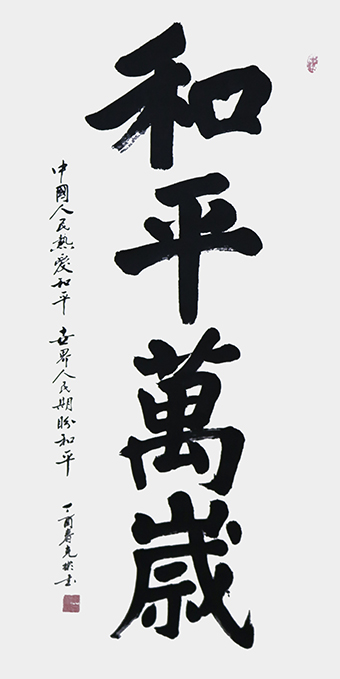 和平萬歲
中國人民熱愛和平 世界人民期盼和平
丁酉春克